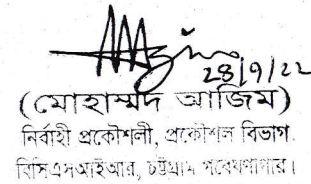 28/9/22
(মোহাম্মদ আজিম)
নির্বাহী প্রকৌশলী, প্রকৌশল বিভাগ
বিসিএসআইআর, চট্টগ্রাম গবেষণাগার।